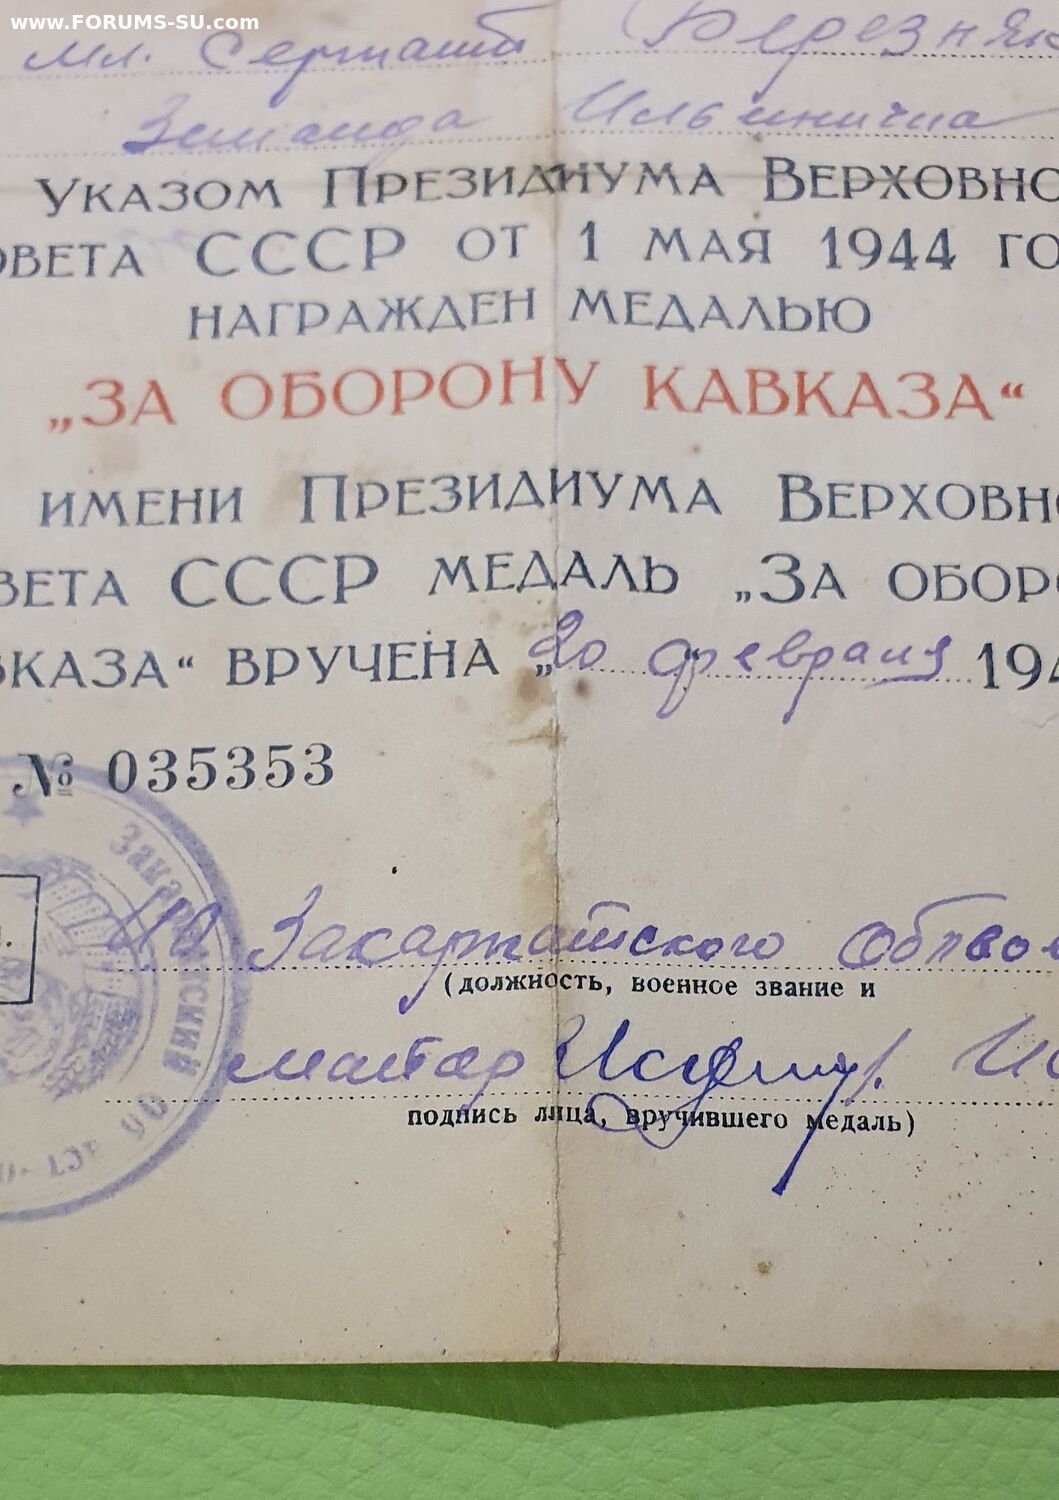 www.FORUMS-SU.com
мл. Сержант Березняк
Ильинична
Указом Президиума Верховно
овета СССР от 1 мая 1944 го
награжден медалью
„ЗА ОБОРОНУ КАВКАЗА“
имени Президиума Верховно
вета СССР медаль „За оборо
вказа“ вручена „20 февраля 194
№ 035353
Закарпатского облвое
(должность, военное звание и
майор
подпись лица, вручившего медаль)